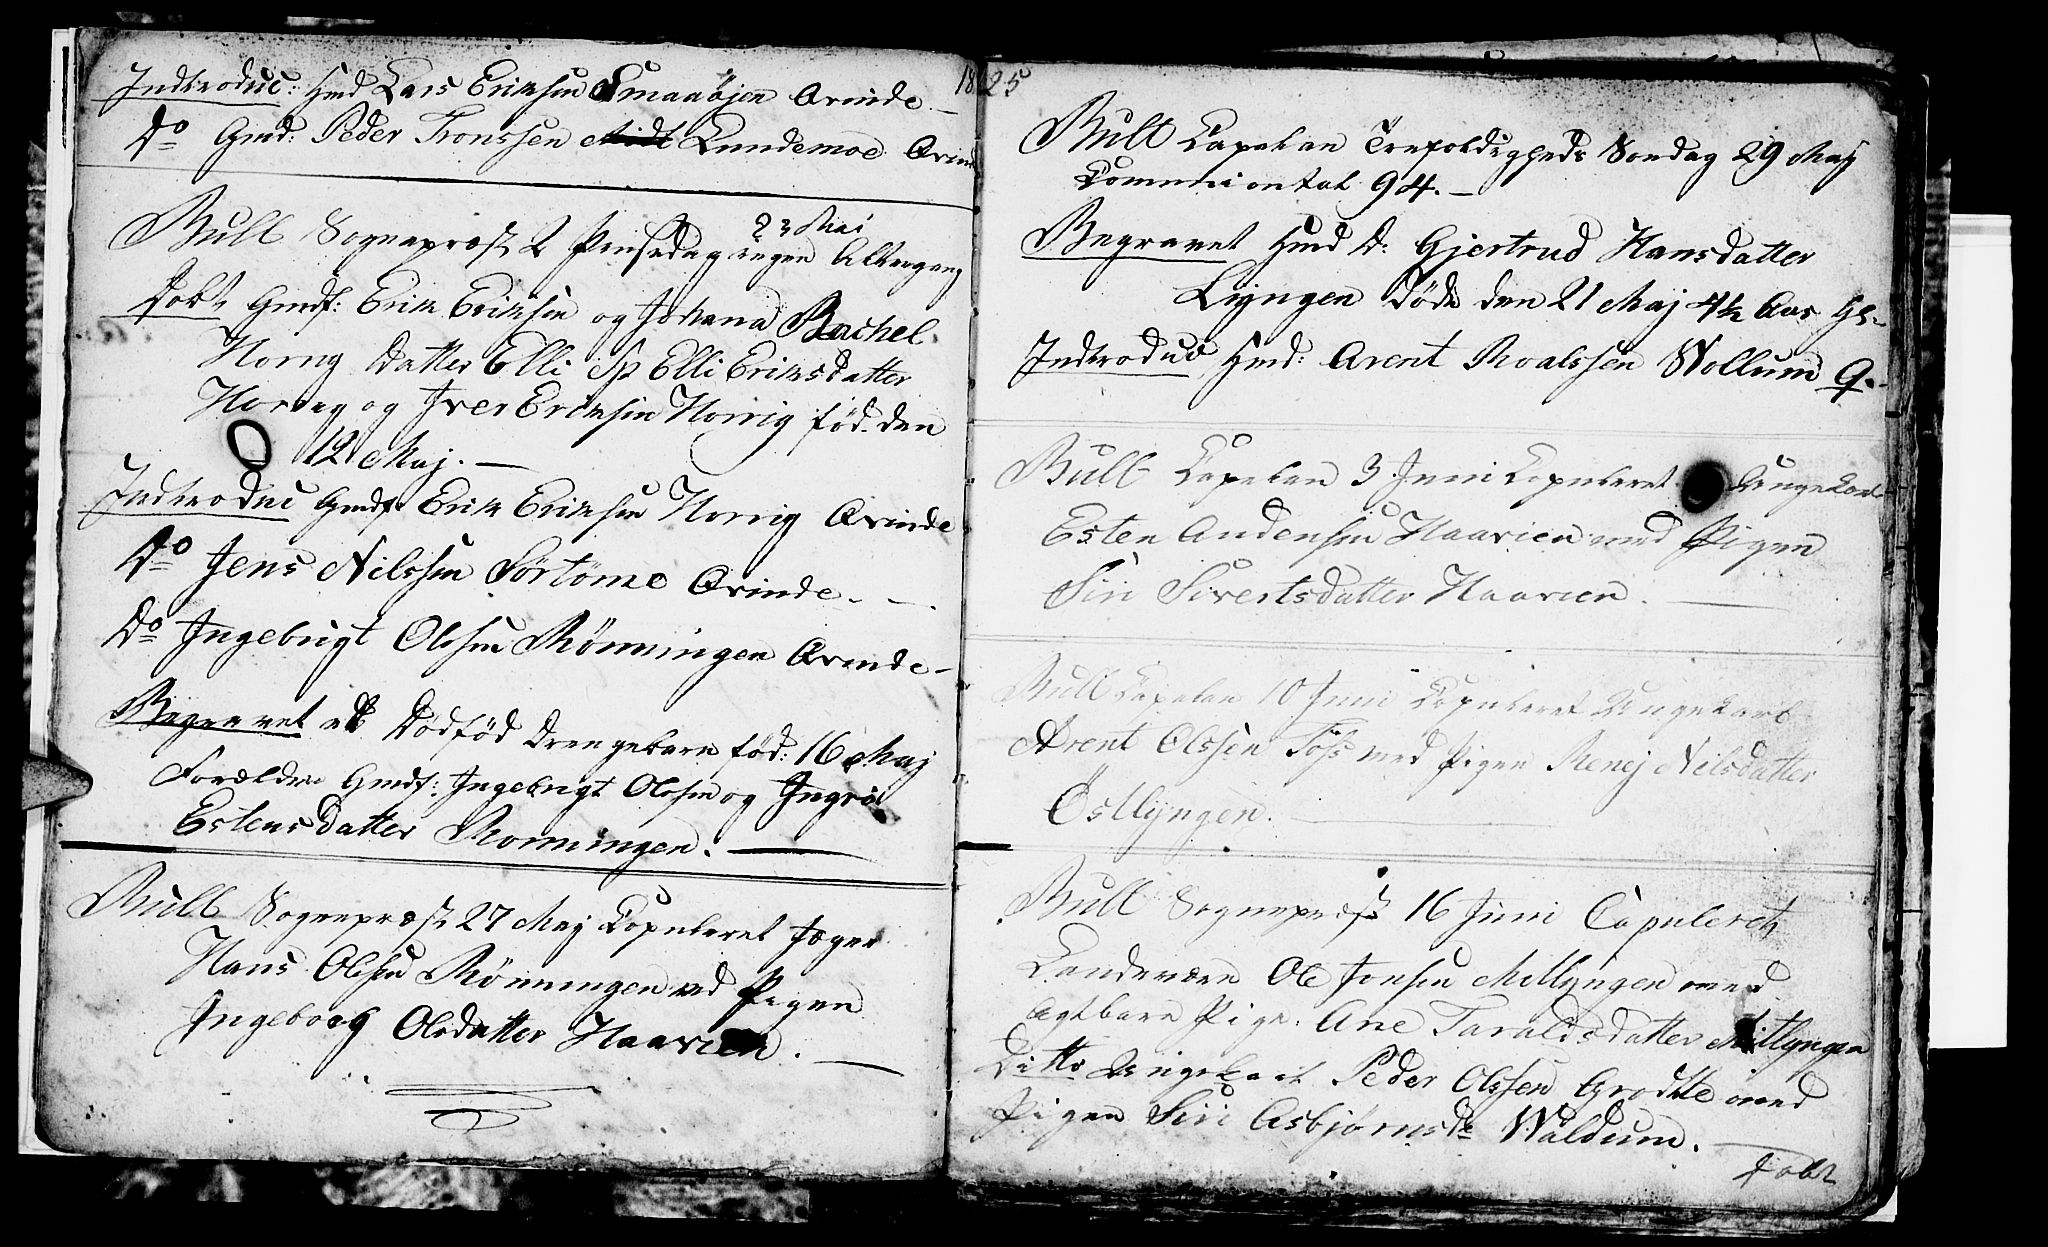 1825
Indtroduc: Hmd Lars Eriksen Smaaøjen Qvinde
Do Gmd: Peder Tronssen Lundemoe Qvin
23 Mai
Bull Sogneprest 2 Pinsedag ingen Altergang
Døbt Gmdf: Erik Eriksen og Johana Rachel
Horrig Datter Elli Sp Elli Eriksdatter
Horrig og Iver Eriksen Horrig fød. den
12 Maj.
Indtroduc Gmdf Erik Eriksen Horrig Qvinde
Do Jens Nilssen Sørtømme Qvinde.
Do Ingebrigt Olssen Rønningen Qvinde
Begravet et Dødfød Drengebarn fød: 16 Maj
Forældre Gmdf: Ingebrigt Olssen og Ingrid
Estensdatter Rønningen.
Bull Sogneprest 27 Maj Copuleret Jæger
Hans Olssen Rønningen med Pigen
Ingeborg Olsdatter Haarien.
Bull Capelan Trefoldigheds Søndag 29 Maj
Commuiontal 94.
Begravet Hmd D: Gjertrud Hansdatter
Liyngen Døde den 21 Maj 4½ Aar
Indtroduc Hmd: Arent Roalssen Wollum Q.
Bull Capelan 3 Juni Copuleret Ungekarl
Esten Andensen Haarien med Pigen
Siri Sivertsdatter Haarien.
Bull Capelan 10 Juni Copuleret Ungekarl
Arent Olssen Foss med Pigen Renej Nilsdatter
Østlyngen.
Bull Sogneprest 16 Juni Copuleret
Landværn Ole Jonsen Mitlyngen med
Agtbare Pige: Ane Taraldsdatter Mitlyngen
Ditto Ungekarl Peder Olssen Grodtte med
Pigen Siri Asbjørnsdr Waldum.
Døbt